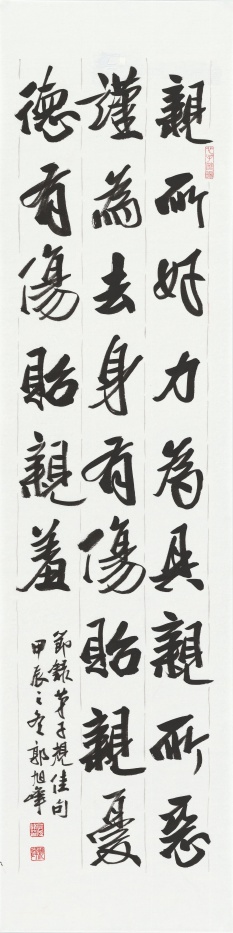 親所好力為具親所惡
謹為去身有傷貽親憂
德有傷貽親羞
節錄弟子規佳句
甲辰之冬郭旭峰